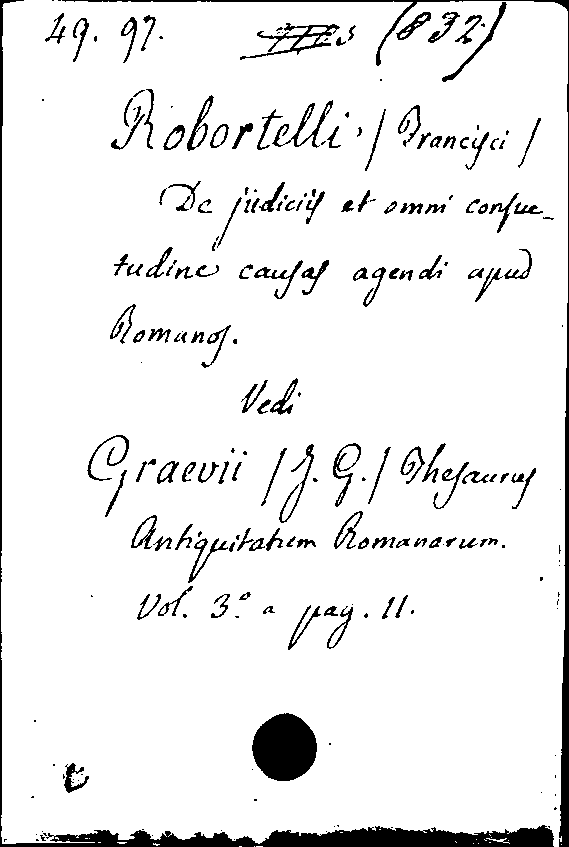 49. 97. (832)
Robortelli, / Francisci /
De judiciis et omni consue-
tudine causas agendi apud
Romanos.
Vedi
Graevii / J. G. / Thesaurus
Antiquitatum Romanarum.
Vol. 3º a pag. 11.